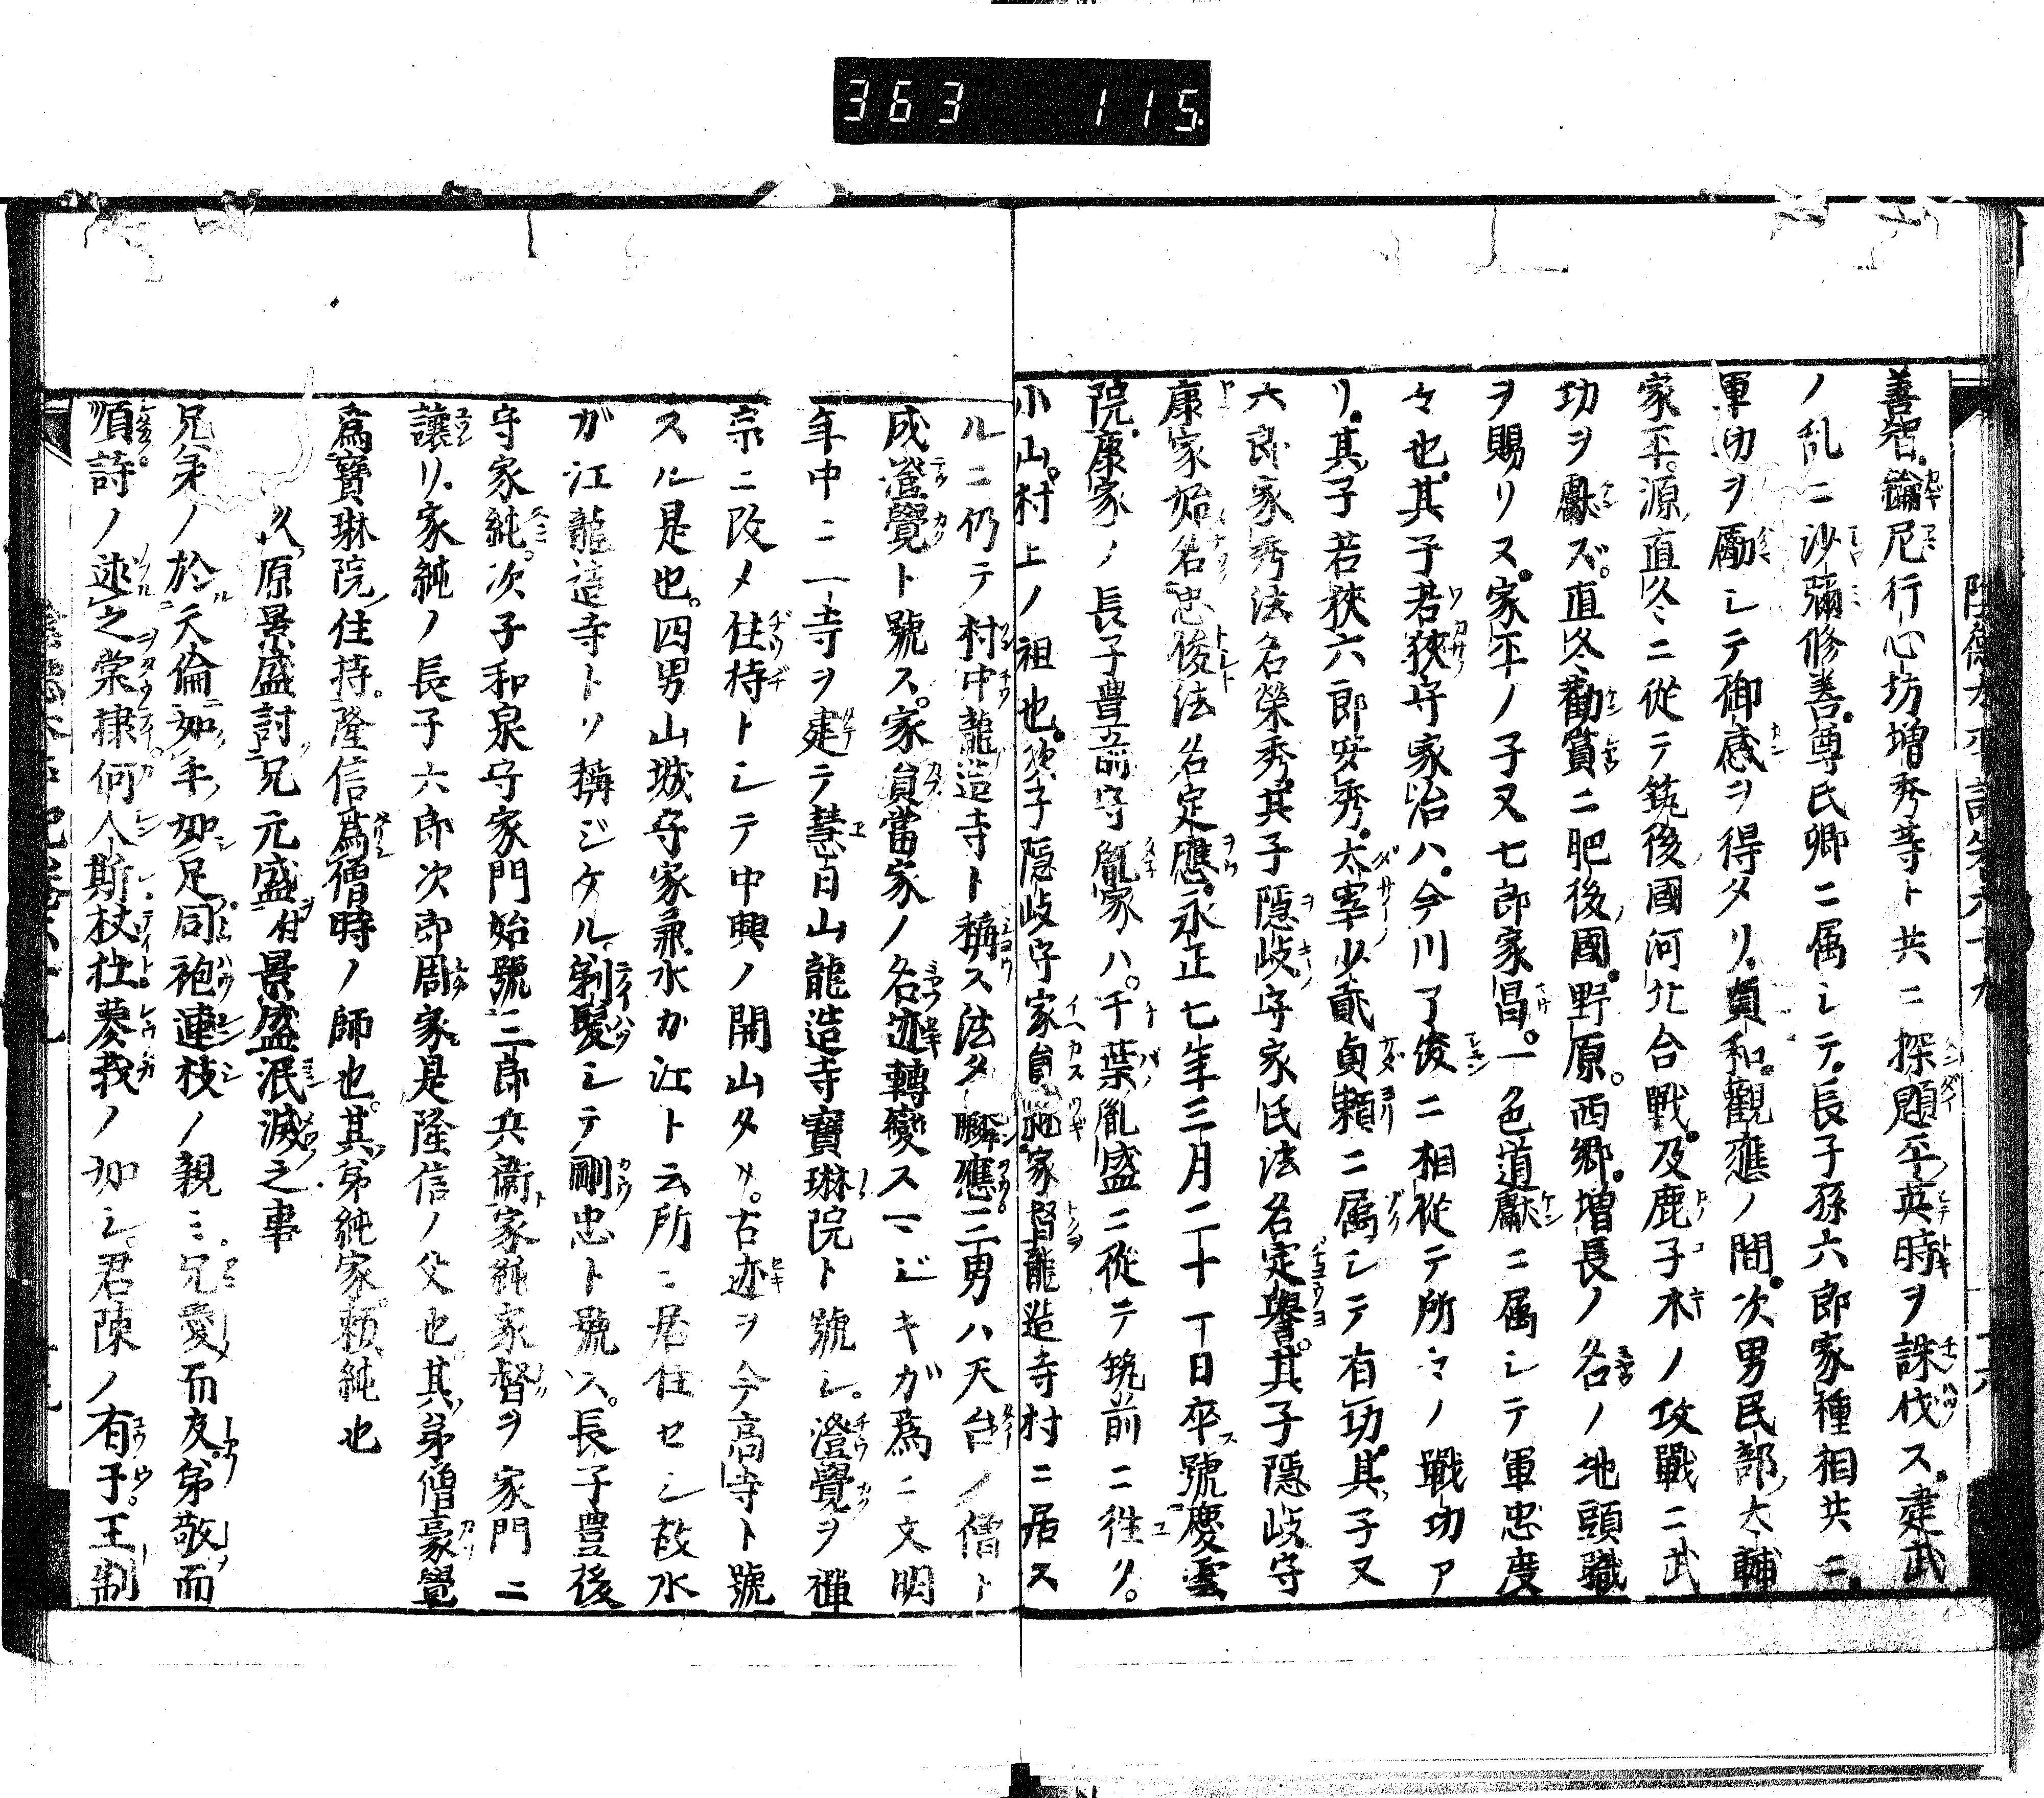 363 115
善智鑰尼行心坊増秀等ト共ニ探題平英時ヲ誅伐ス建武
ノ乱ニ沙彌修善尊氏卿ニ属シテ長子孫六郎家種相共ニ
軍功ヲ勵シテ御感ヲ得タリ貞和觀應ノ間次男民部大輔
家平源直冬ニ從テ筑後國河北合戰及鹿子木ノ攻戰ニ武
功ヲ勵ズ直冬勸賞ニ肥後國野原西郷増長ノ名ノ地頭職
ヲ賜リス家平ノ子又七郎家昌一色道獻ニ属シテ軍忠度
々也其子若狹守家治ハ今川了俊ニ相從テ所々ノ戰功ア
リ其子若狹六郎安秀太宰少貳貞頼ニ属シテ有功其子又
六郎家秀法名榮秀其子隠岐守家氏法名定譽其子隠岐守
康家始名忠俊法名定應永正七年三月二十一日卒號慶雲
院康家ノ長子豊前守胤家ハ千葉胤盛ニ從テ筑前ニ往リ
小山村上ノ祖也次子隠岐守家員継家督龍造寺村ニ居ス
ルニ仍テ村中龍造寺ト稱ス法タ聯應三男ハ天台ノ僧ト
成澄覺ト號ス家員當家ノ名迹轉變スマジキガ爲ニ文明
年中ニ一寺ヲ建テ慧日山龍造寺寶琳院ト號シ澄覺ヲ禪
宗ニ改メ住持トシテ中興ノ開山タリ古迹ヲ今高寺ト號
スル是也四男山城守家兼水カ江ト云所ニ居住セシ故水
ガ江龍造寺トソ稱ジケル剃髮シテ剛忠ト號ス長子豊後
守家純次子和泉守家門始號三郎兵衞家純家督ヲ家門ニ
讓リ家純ノ長子六郎次郎周家是隆信ノ父也其弟僧豪覺
爲寶琳院住持隆信爲僧時ノ師也其弟純家頼純也
久原景盛討兄元盛付景盛泯滅之事
兄弟ノ於天倫如手如足同袍連枝ノ親ミ兄愛而友弟敬而
順詩ノ逑之棠棣何人斯杕杜蓼莪ノ如シ君陳ノ有于王制